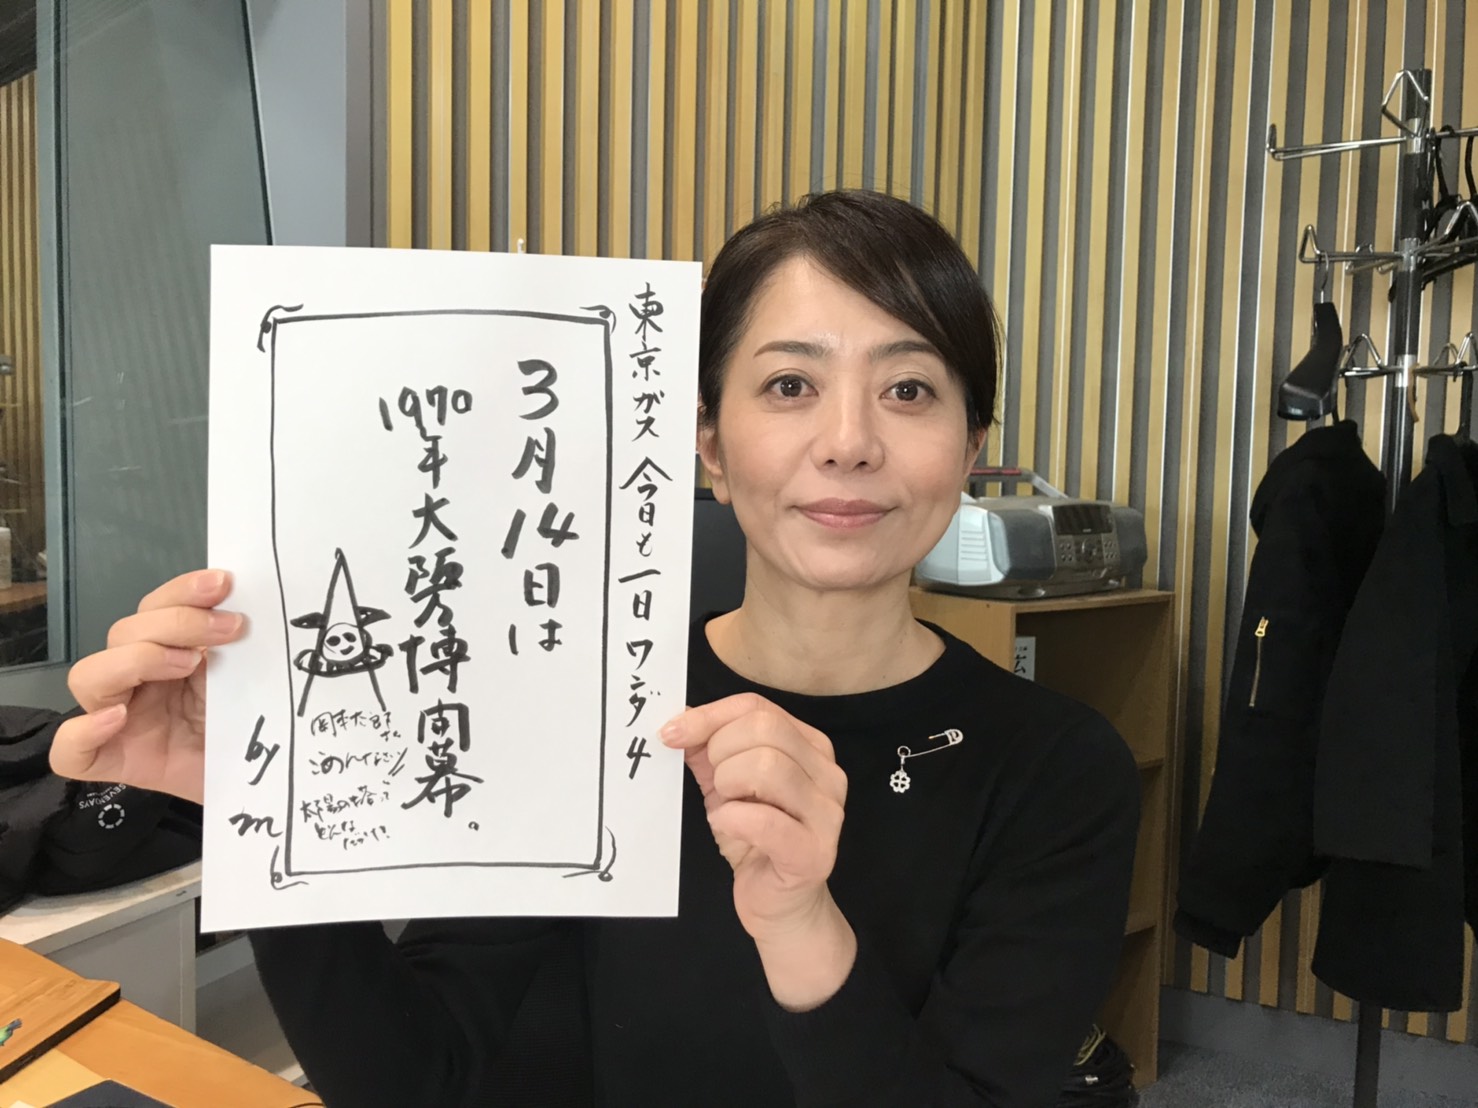 東京ガス 今日も一日ワンダ4
3月14日は
1970年大阪博開幕。
岡本太郎さん
ごめんなさい!!
太陽の塔って
どんな
だっけ?
by m
SEVENDAYS